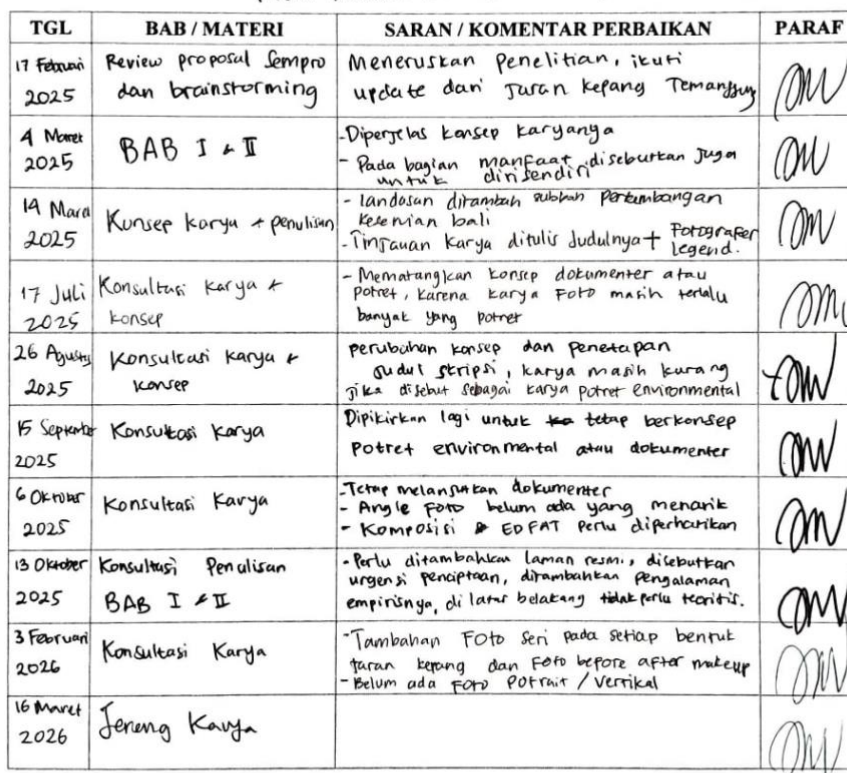 TGL BAB / MATERI SARAN / KOMENTAR PERBAIKAN PARAF
17 Februari 2025
Review proposal Sempro
dan brainstorming
Meneruskan Penelitian, ikuti
update dari Jaran kepang Temanggung
4 Maret
2025
BAB I & II
- Diperjelas konsep karyanya
- Pada bagian manfaat disebutkan Juga
untuk dirisendiri
14 Maret
2025
Konsep karya + penulisan
- landasan ditambah subbab Pertambangan
kesenian bali
- Tinjauan Karya ditulis Judulnya + Fotografer
legend.
17 Juli
2025
Konsultasi karya &
konsep
- Mematangkan konsep dokumenter atau
potret, karena karya Foto masih terlalu
banyak yang potret
26 Agustus
2025
Konsultasi karya &
konsep
perubahan konsep dan penetapan
Judul skripsi, karya masih kurang
jika disebut sebagai karya potret environmental
15 September
2025
Konsultasi Karya
Dipikirkan lagi untuk tetap berkonsep
Potret environmental atau dokumenter
6 Oktober
2025
Konsultasi Karya
- Tetap melanjutkan dokumenter
- Angle Foto belum ada yang menarik
- Komposisi & EDFAT Perlu diperhatikan
13 Oktober
2025
Konsultasi Penulisan
BAB I & II
- Perlu ditambahkan laman resmi, disebutkan
urgensi penciptaan, ditambahkan pengalaman
empirisnya, di latar belakang tidak perlu teoritis.
3 Februari
2026
Konsultasi Karya
- Tambahan Foto Seri pada setiap bentuk
jaran kepang dan Foto before after makeup
- Belum ada Foto Potrait / Vertikal
16 Maret
2026
Jereng Karya